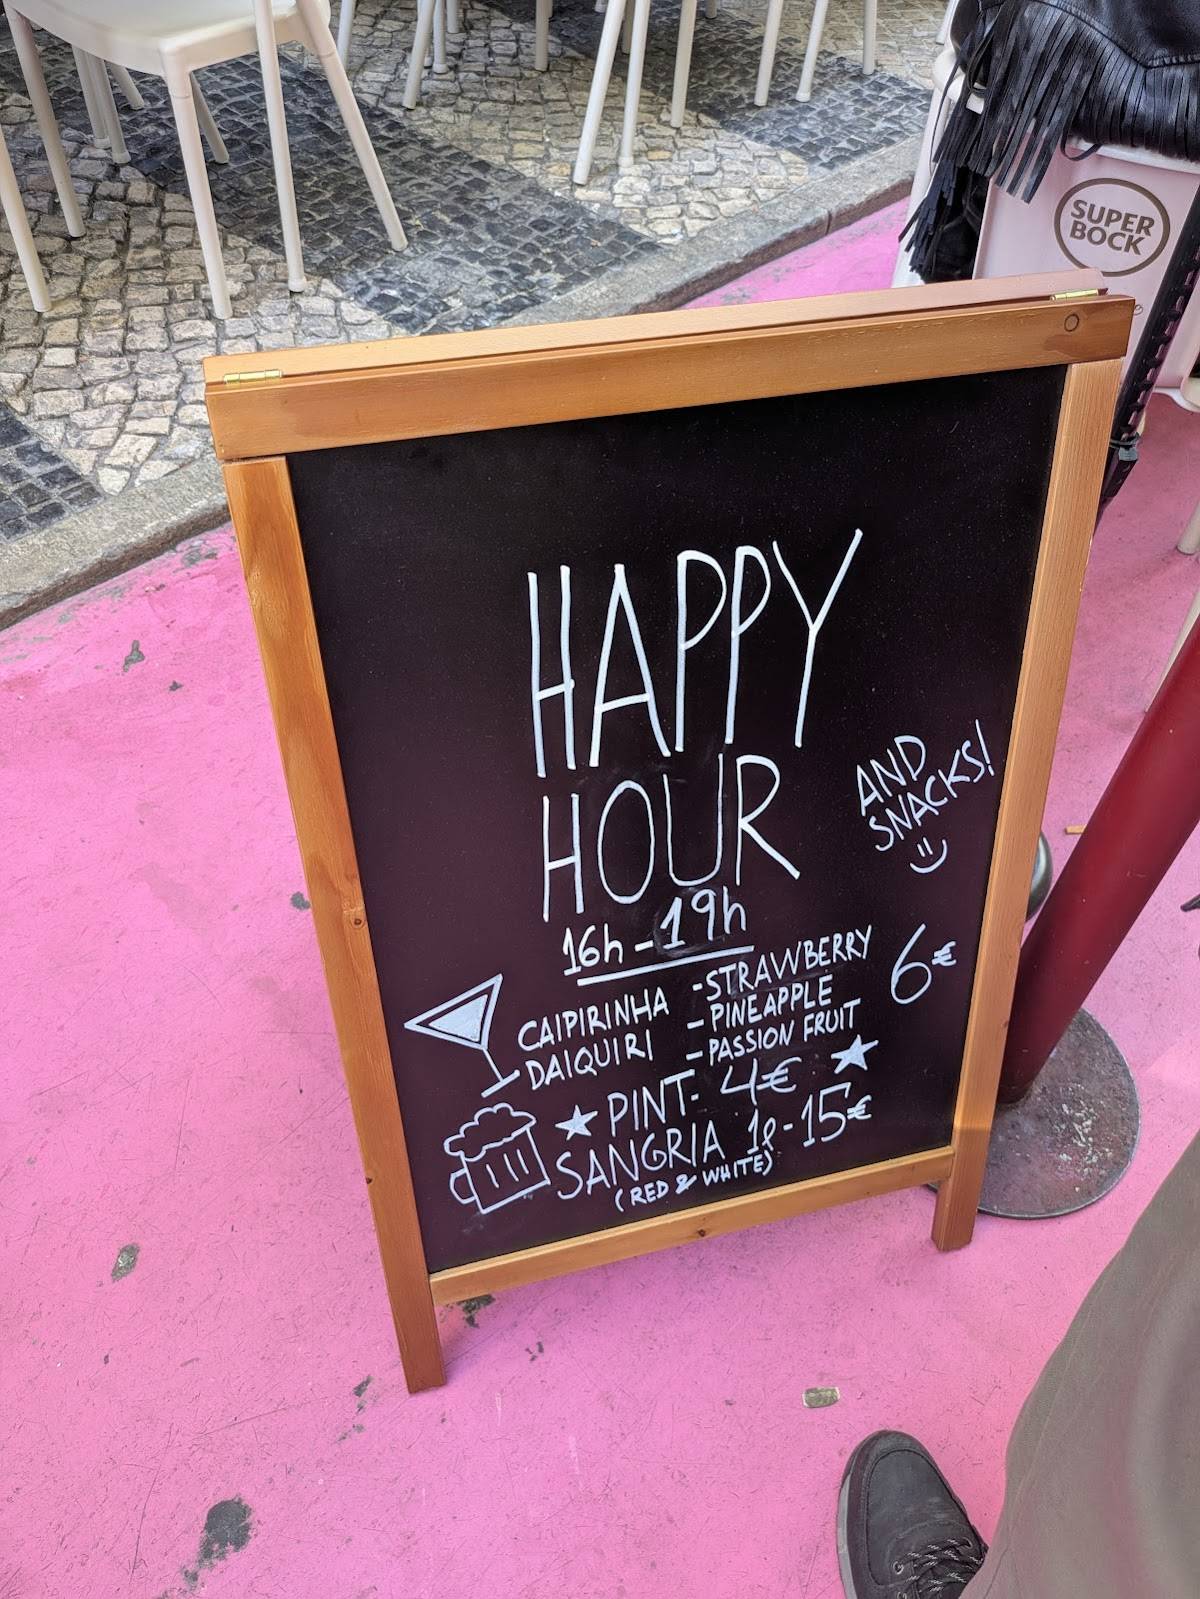 SUPER
BOCK
HAPPY
HOUR
AND
SNACKS!
16h - 19h
CAIPIRINHA
DAIQUIRI
- STRAWBERRY
- PINEAPPLE
- PASSION FRUIT
6€
PINT - 4€
SANGRIA 1l - 15€
(RED & WHITE)